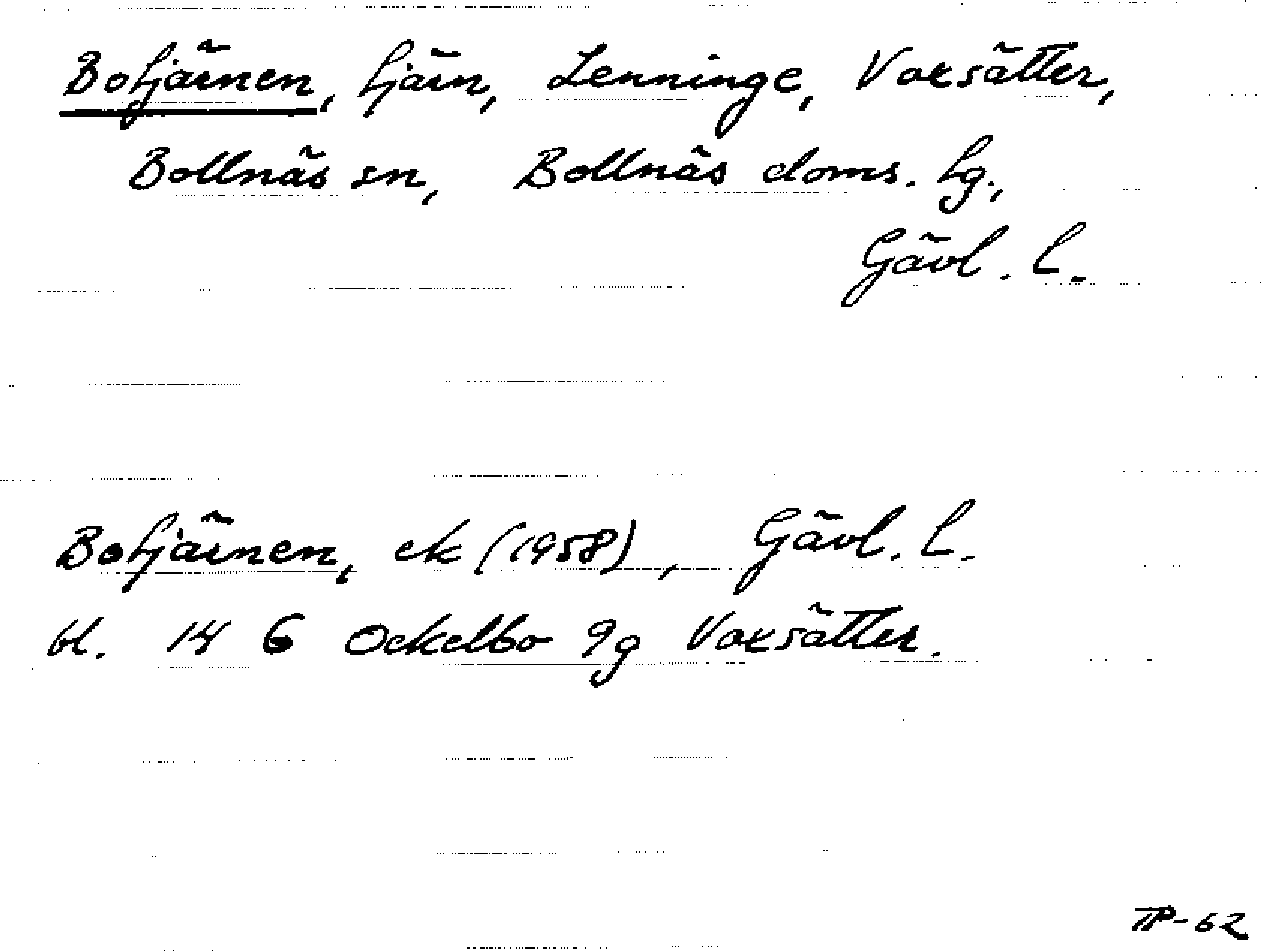 Botjärnen, tjärn, Lenninge, Voxsätter,
Bollnäs sn, Bollnäs doms. tg.,
Gävl. l.
Botjärnen, ek (1958), Gävl. l.
bl. 14 G Ockelbo 9g Voxsätter.
TP-62